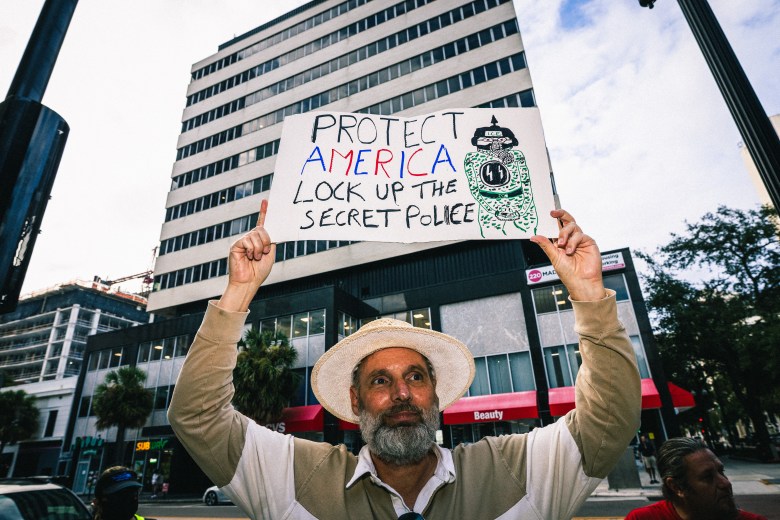 PROTECT
AMERICA
LOCK UP THE
SECRET POLICE
I.C.E.
230
Beauty
SUB